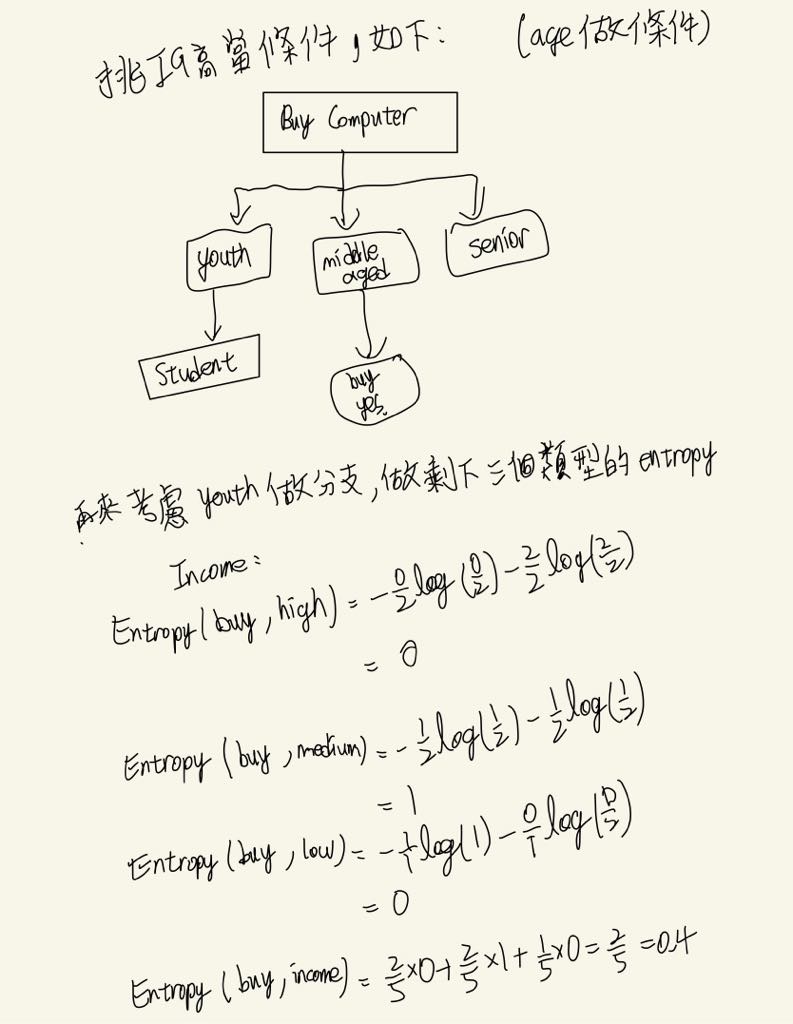 挑IG高當條件,如下: (age做條件)
Buy Computer
youth
middle
aged
senior
Student
buy
yes.
再來考慮 youth 做分支,做剩下三個類型的 entropy
Income:
Entropy(buy, high) = -0/2 log(0/2) - 2/2 log(2/2)
= 0
Entropy (buy, medium) = -1/2 log(1/2) - 1/2 log(1/2)
= 1
Entropy (buy, low) = -1/1 log(1) - 0/1 log(0/5)
= 0
Entropy (buy, income) = 2/5 ×0+ 2/5 ×1+ 1/5 ×0 = 2/5 = 0.4